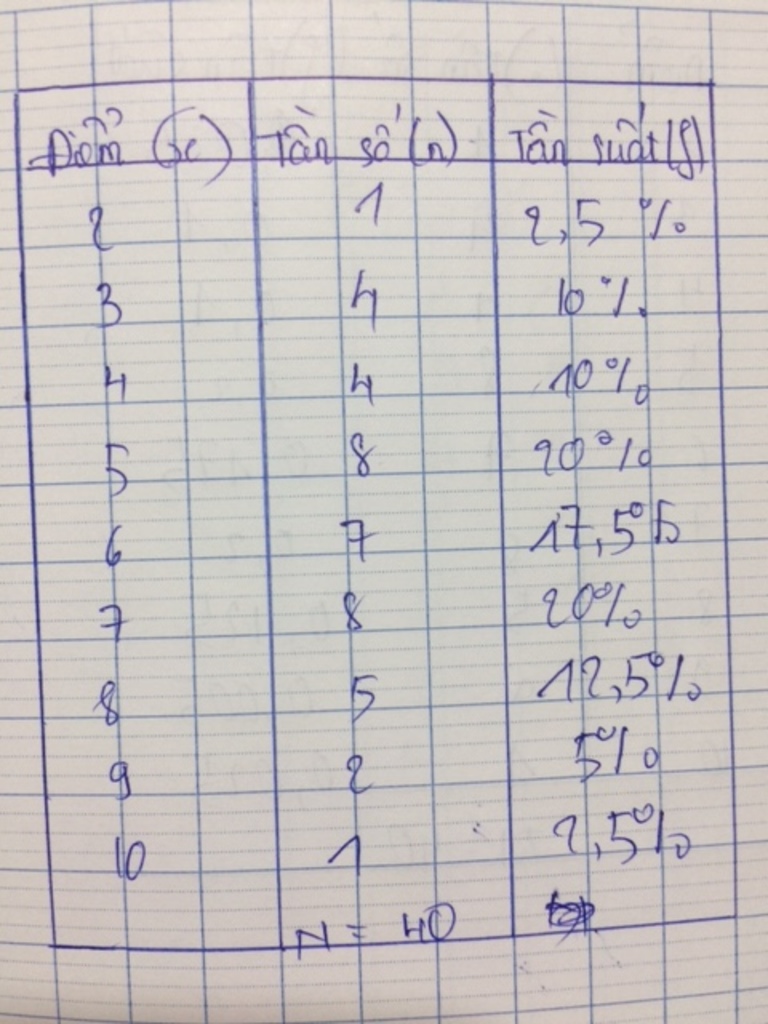 Điểm (x) Tần số (n) Tần suất (f)
2 1 2,5 %
3 4 10 %
4 4 10 %
5 8 20 %
6 7 17,5 %
7 8 20 %
8 5 12,5 %
9 2 5 %
10 1 2,5 %
N = 40